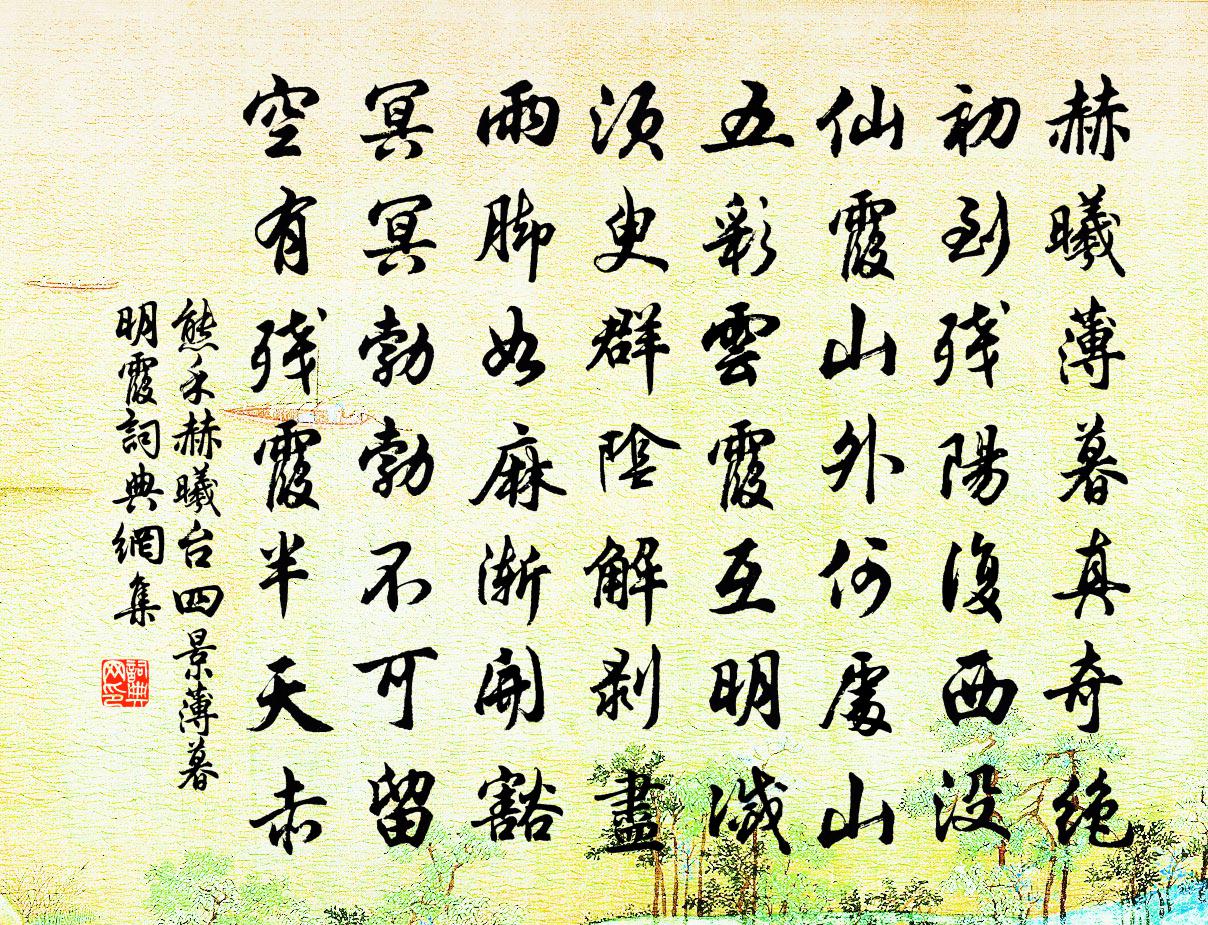 赫曦薄暮真奇绝
初到残陽復西没
仙霞山外何處山
五彩雲霞互明滅
須臾群陰解剥盡
雨脚如麻漸開豁
冥冥勃勃不可留
空有残霞半天赤
熊禾赫曦台四景薄暮
明霞詞典網集
詞典
网印